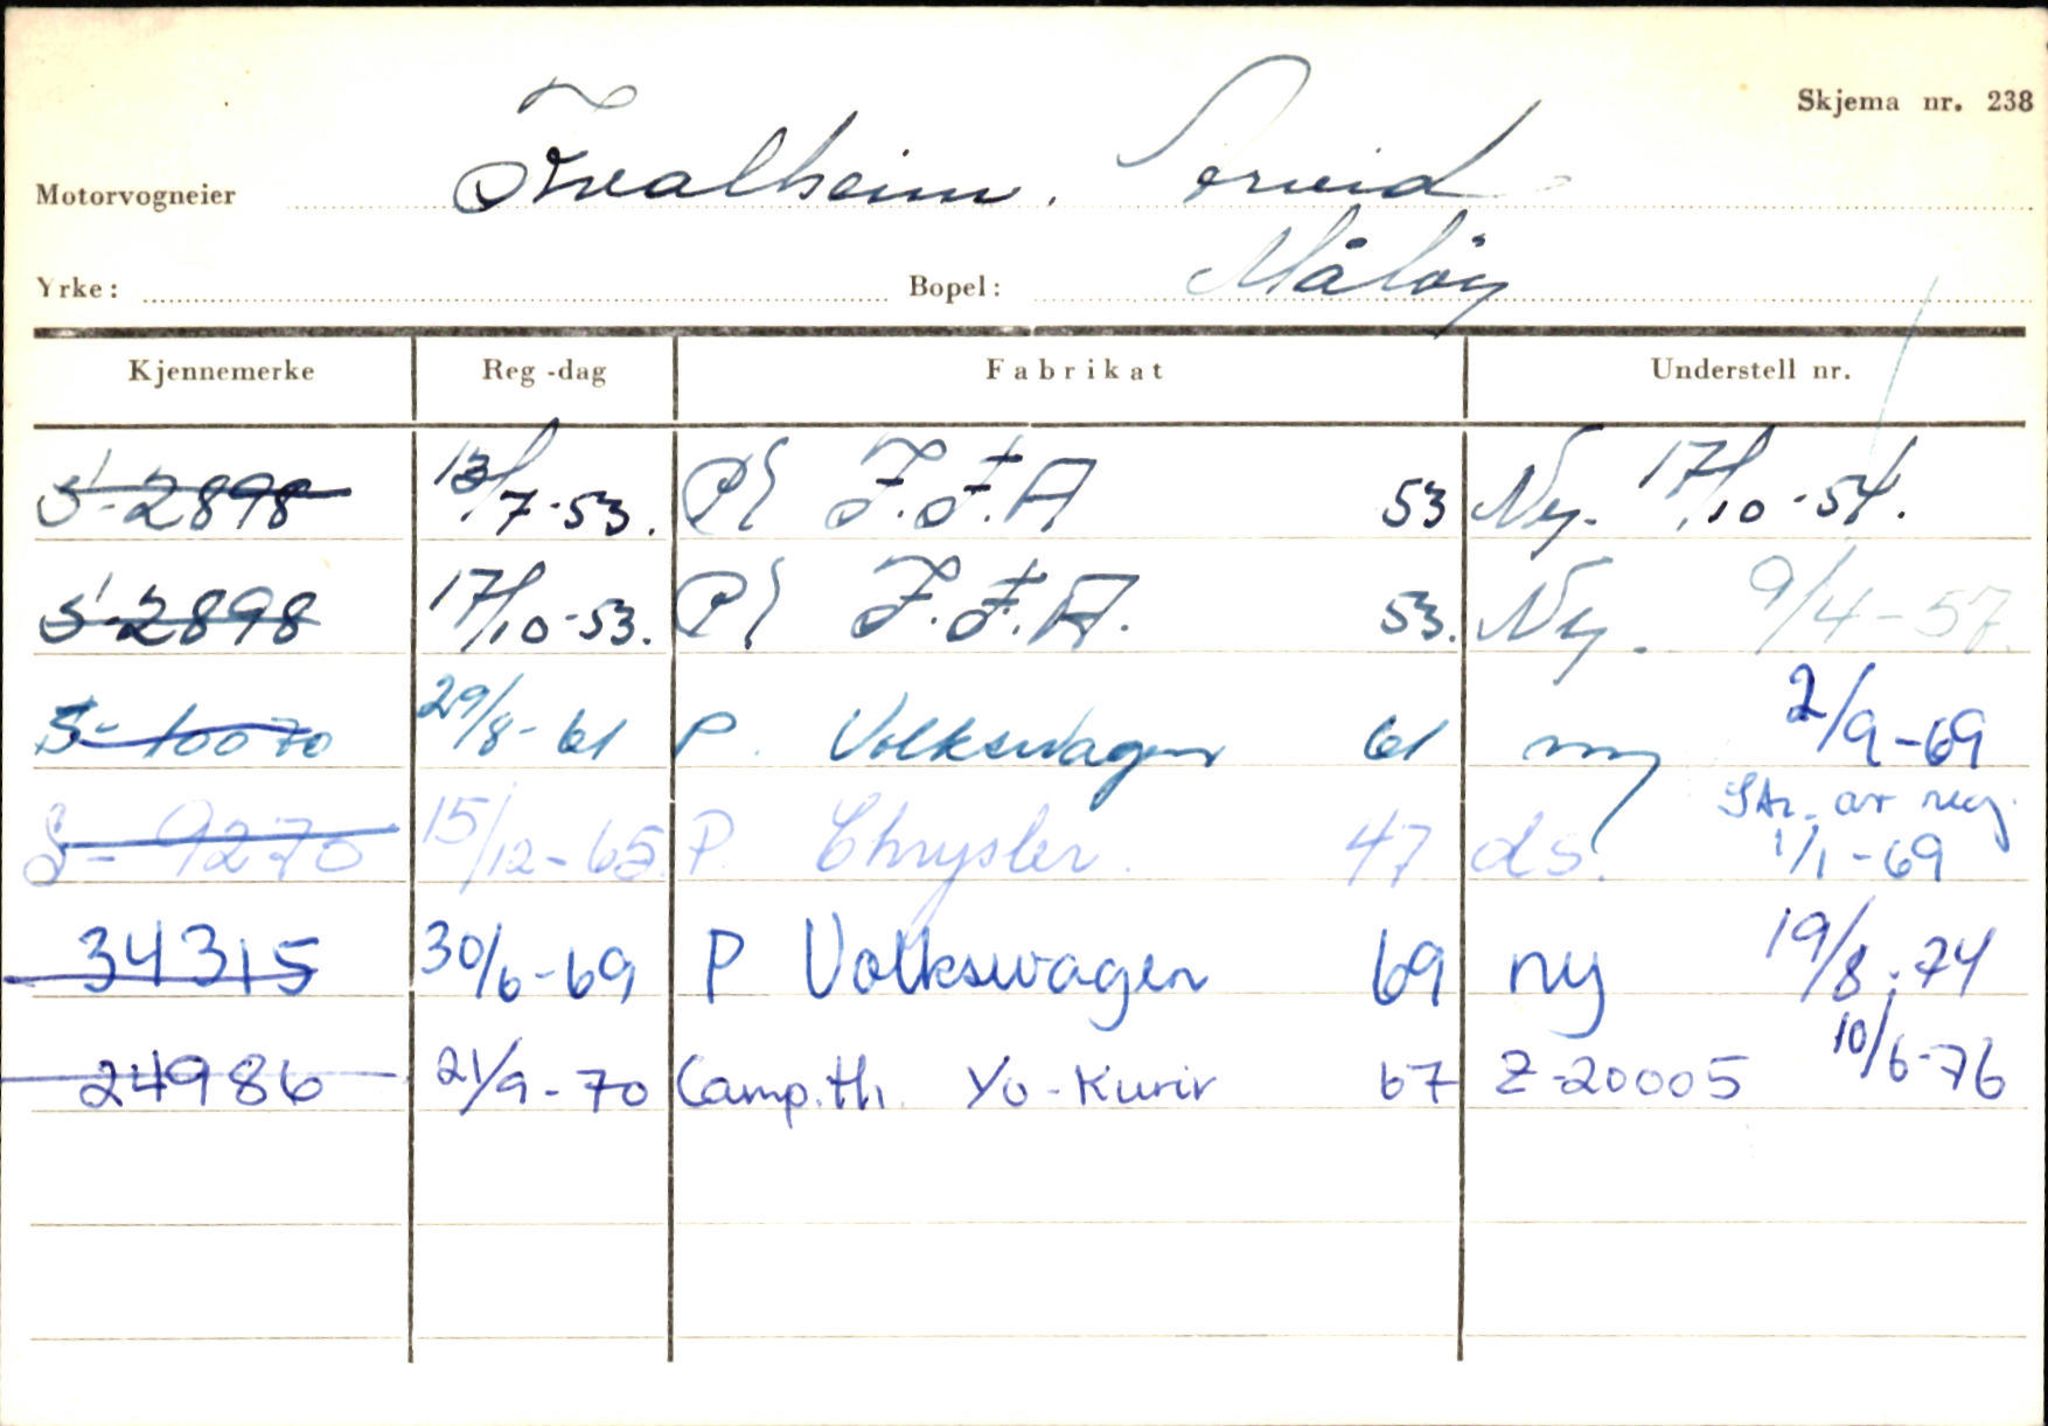 Skjema nr. 238
Motorvogneier Tvealheim, Arvid
Yrke: Bopel: Måløy
Kjennemerke Reg-dag Fabrikat Understell nr.
S-2898 13/7-53. Pl I.F.A 53 Ny. 17/10-54.
S-2898 17/10-53. Pl I.F.A. 53. Ny. 9/4-57.
S-10070 29/8-61 P. Volkswagen 61 ny 2/9-69
Str. av reg.
S-9270 15/12-65. P. Chrysler. 47 ds. 1/1-69
34315 30/6-69 P Volkswagen 69 ny 19/8-74
24986 21/9-70 Camp.th. Yo-Kurir 67 Z-20005 10/6-76